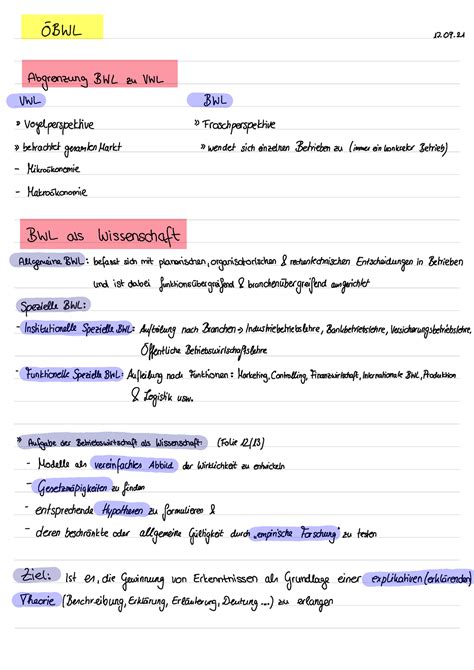 ÖBWL
17.09.21
Abgrenzung BWL zu VWL
VWL
BWL
» Vogelperspektive
» Froschperspektive
» betrachtet gesamten Markt
» wendet sich einzelnen Betrieben zu (immer ein konkreter Betrieb)
- Mikroökonomie
- Makroökonomie
BWL als Wissenschaft
Allgemeine BWL: befasst sich mit planerischen, organisatorischen & rechentechnischen Entscheidungen in Betrieben
und ist dabei funktionsübergreifend & branchenübergreifend ausgerichtet
Spezielle BWL:
- Institutionelle Spezielle BWL: Aufteilung nach Branchen → Industriebetriebslehre, Bankbetriebslehre, Versicherungsbetriebslehre,
Öffentliche Betriebswirtschaftslehre
- Funktionelle Spezielle BWL: Aufteilung nach Funktionen: Marketing, Controlling, Finanzwirtschaft, Internationale BWL, Produktion
& Logistik usw.
» Aufgabe der Betriebswirtschaft als Wissenschaft: (Folie 12/13)
- Modelle als vereinfachtes Abbild der Wirklichkeit zu entwickeln
- Gesetzmäßigkeiten zu finden
- entsprechende Hypothesen zu formulieren &
- deren beschränkte oder allgemeine Gültigkeit durch „empirische Forschung" zu testen
Ziel: Ist es, die Gewinnung von Erkenntnissen als Grundlage einer explikativen (erklärenden)
Theorie (Beschreibung, Erklärung, Erläuterung, Deutung ...) zu erlangen